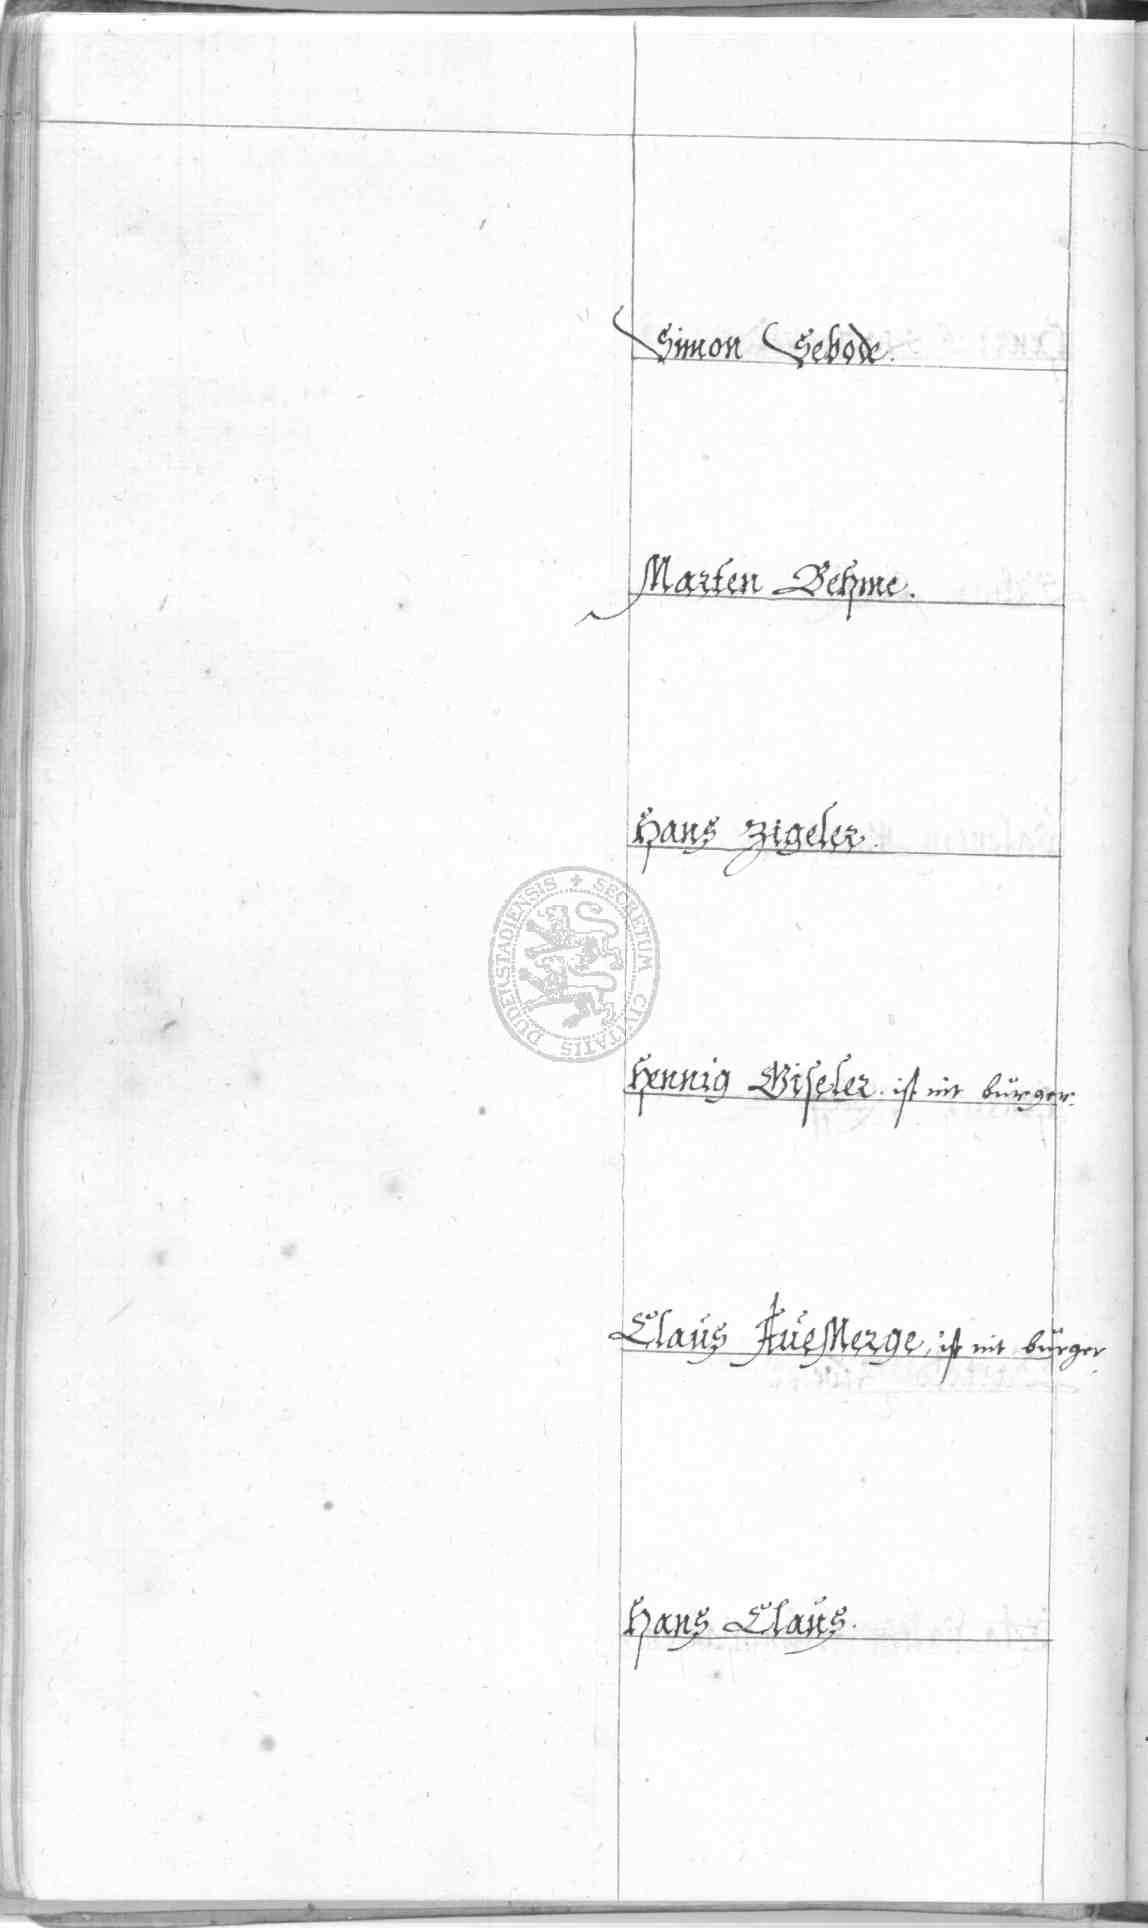 Simon Sebode.
Marten Behme.
Hans Zigeler.
SECRETUM CIVITATIS DUDERSTADIENSIS
Hennig Giseler. ist nit bürger.
Claus ist nit bürger
Hans Claus.